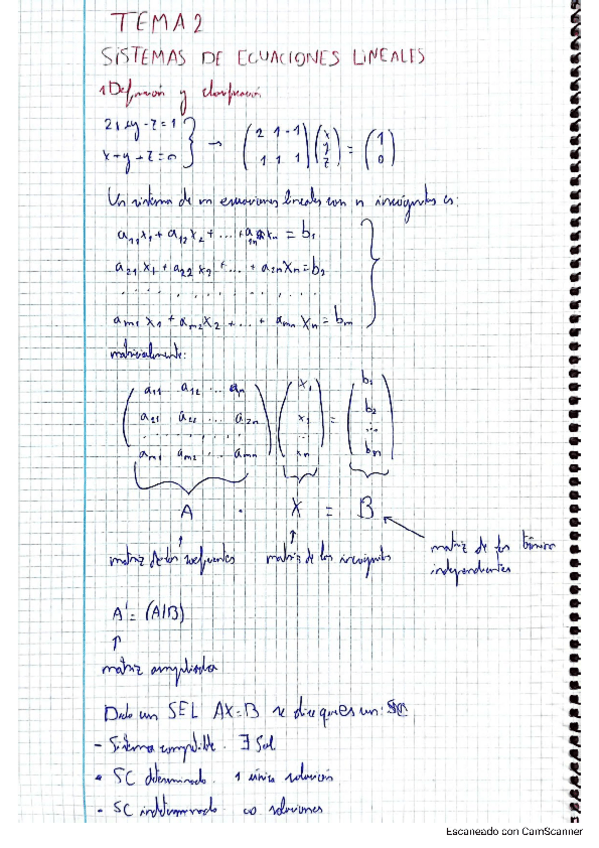 TEMA 2
SISTEMAS DE ECUACIONES LINEALES
1 Definición y clasificación
2x+y-z=1
x+y+z=0
→ (2 1 -1
1 1 1) (x
y
z) = (1
0)
Un sistema de m ecuaciones lineales con n incógnitas es:
a₁₁x₁ + a₁₂x₂ + ... + a₁ₙxₙ = b₁
a₂₁x₁ + a₂₂x₂ + ... + a₂ₙxₙ = b₂
. . . . . . . . . . . .
aₘ₁x₁ + aₘ₂x₂ + ... + aₘₙxₙ = bₘ
matricialmente:
a₁₁ a₁₂ ... aₙ x₁ b₁
a₂₁ a₂₂ ... a₂ₙ x₂ = b₂
. . . . . . . . . . :
aₘ₁ aₘ₂ ... aₘₙ xₙ bₘ
A · X = B
matriz de los coeficientes
matriz de las incógnitas
matriz de los términos
independientes
A' = (A|B)
↑
matriz ampliada
Dado un SEL AX=B se dice que es un:
- Sistema compatible. ∃ Sol
- SC determinado. 1 única solución
- SC indeterminado ∞ soluciones
Escaneado con CamScanner